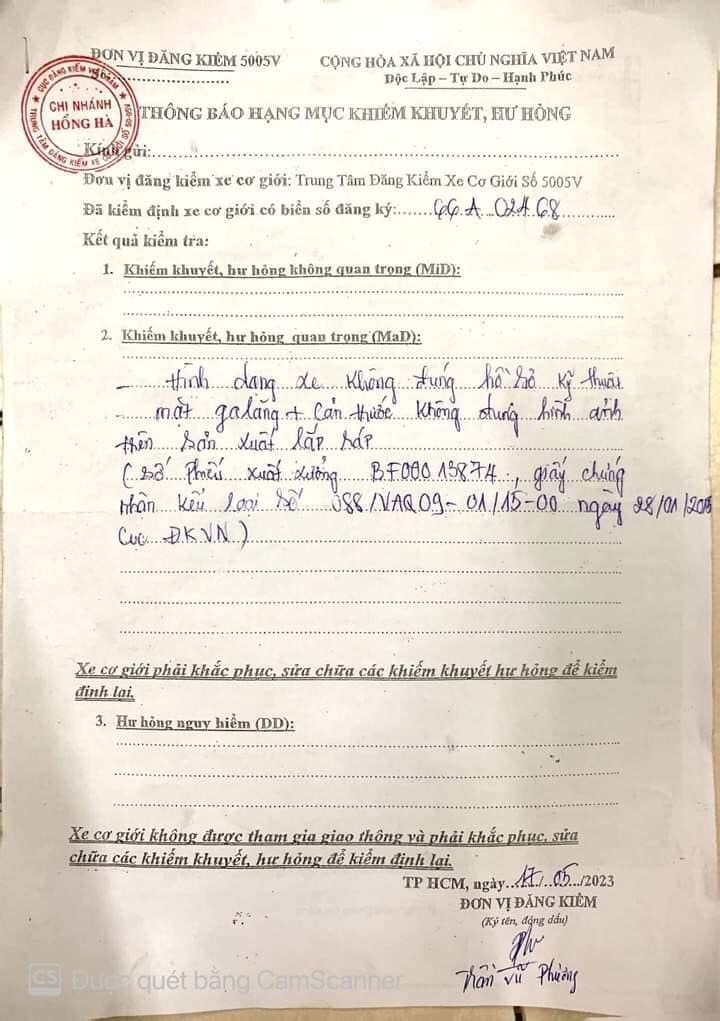 ĐƠN VỊ ĐĂNG KIỂM 5005V
CỘNG HÒA XÃ HỘI CHỦ NGHĨA VIỆT NAM
Độc Lập – Tự Do – Hạnh Phúc
CỤC ĐĂNG KIỂM VIỆT NAM
CHI NHÁNH
HỒNG HÀ
TRUNG TÂM ĐĂNG KIỂM XE CƠ GIỚI SỐ 50-05V
THÔNG BÁO HẠNG MỤC KHIẾM KHUYẾT, HƯ HỎNG
Kính gửi:
Đơn vị đăng kiểm xe cơ giới: Trung Tâm Đăng Kiểm Xe Cơ Giới Số 5005V
Đã kiểm định xe cơ giới có biển số đăng ký: 66A 02468
Kết quả kiểm tra:
1. Khiếm khuyết, hư hỏng không quan trọng (MiD):
2. Khiếm khuyết, hư hỏng quan trọng (MaD):
– hình dạng xe không đúng hồ sơ kỹ thuật
mặt galăng + Cản trước không đúng hình ảnh
trên sản xuất lắp ráp
(số Phiếu xuất xưởng BF00013874, giấy chứng
nhận kiểu loại số 088/VAQ09-01/15-00 ngày 28/01/2015
Cục ĐKVN)
Xe cơ giới phải khắc phục, sửa chữa các khiếm khuyết hư hỏng để kiểm
định lại.
3. Hư hỏng nguy hiểm (DD):
Xe cơ giới không được tham gia giao thông và phải khắc phục, sửa
chữa các khiếm khuyết, hư hỏng để kiểm định lại.
TP HCM, ngày 17/05/2023
ĐƠN VỊ ĐĂNG KIỂM
(Ký tên, đóng dấu)
Trần Vũ Phương
CS Được quét bằng CamScanner